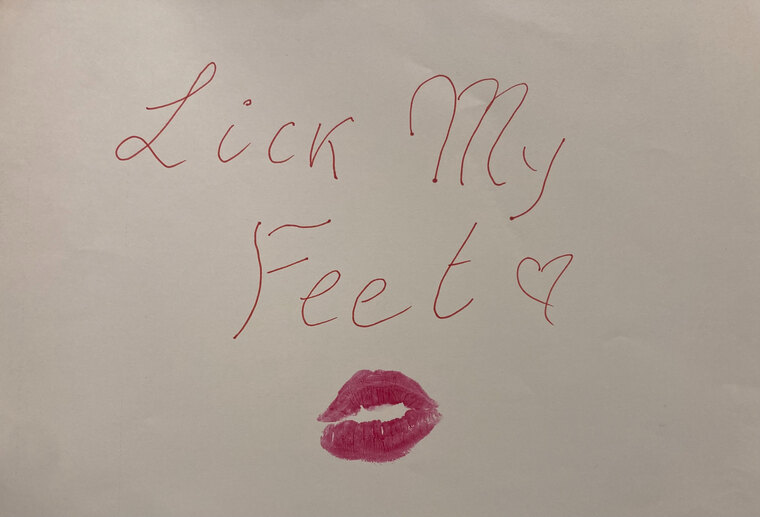 Lick My
Feet ♡